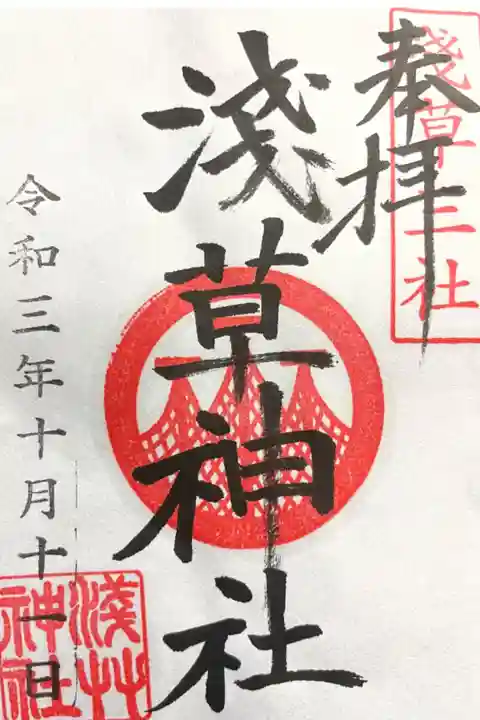 奉拝
淺草三社
淺草神社
令和三年十月十一日
淺草
神社